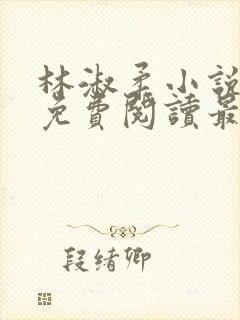 林淑柔小說
免費閱讀最
段绪卿